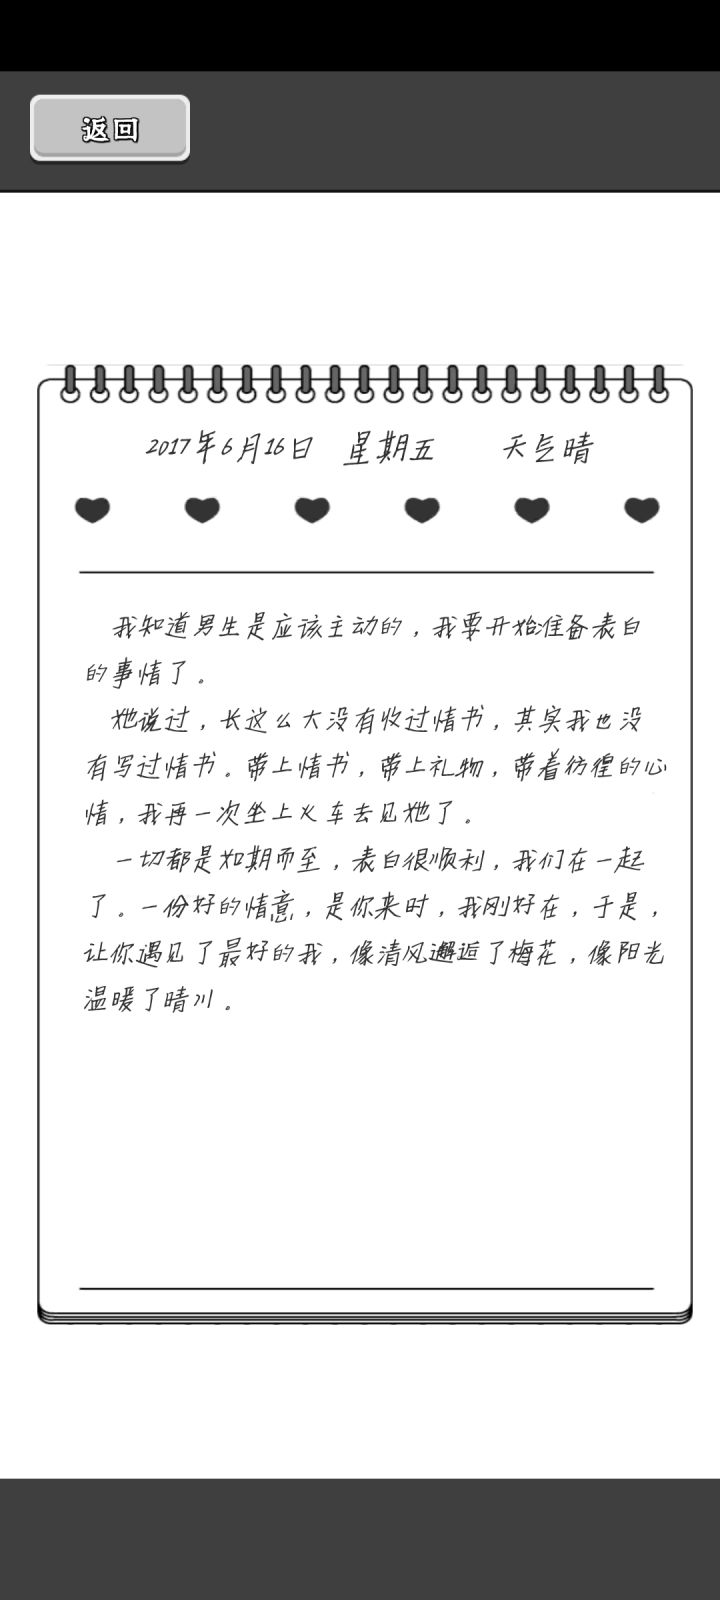 返回
2017年6月16日 星期五 天气晴
我知道男生是应该主动的，我要开始准备表白
的事情了。
她说过，长这么大没有收过情书，其实我也没
有写过情书。带上情书，带上礼物，带着彷徨的心
情，我再一次坐上火车去见她了。
一切都是如期而至，表白很顺利，我们在一起
了。一份好的情意，是你来时，我刚好在，于是，
让你遇见了最好的我，像清风邂逅了梅花，像阳光
温暖了晴川。